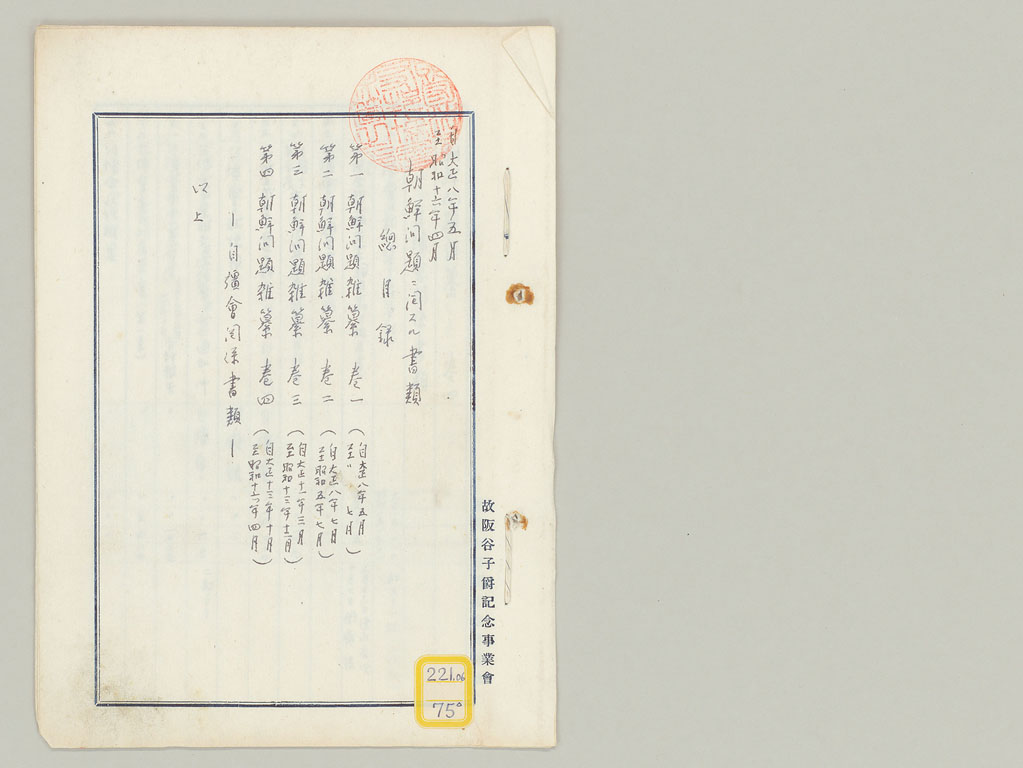 自大正八年五月
至昭和十六年四月
朝鮮问題ニ関スル書類
總目録
第一 朝鮮问題雑纂 巻一 (自大正八年五月 至〃七月)
第二 朝鮮问題雑纂 巻二 (自大正八年七月 至昭和五年七月)
第三 朝鮮问題雑纂 巻三 (自大正十一年三月 至昭和十三年十二月)
第四 朝鮮问題雑纂 巻四 (自大正十三年十月 至昭和十六年四月)
—自彊會関係書類—
以上
故阪谷子爵記念事業會
221.06
75